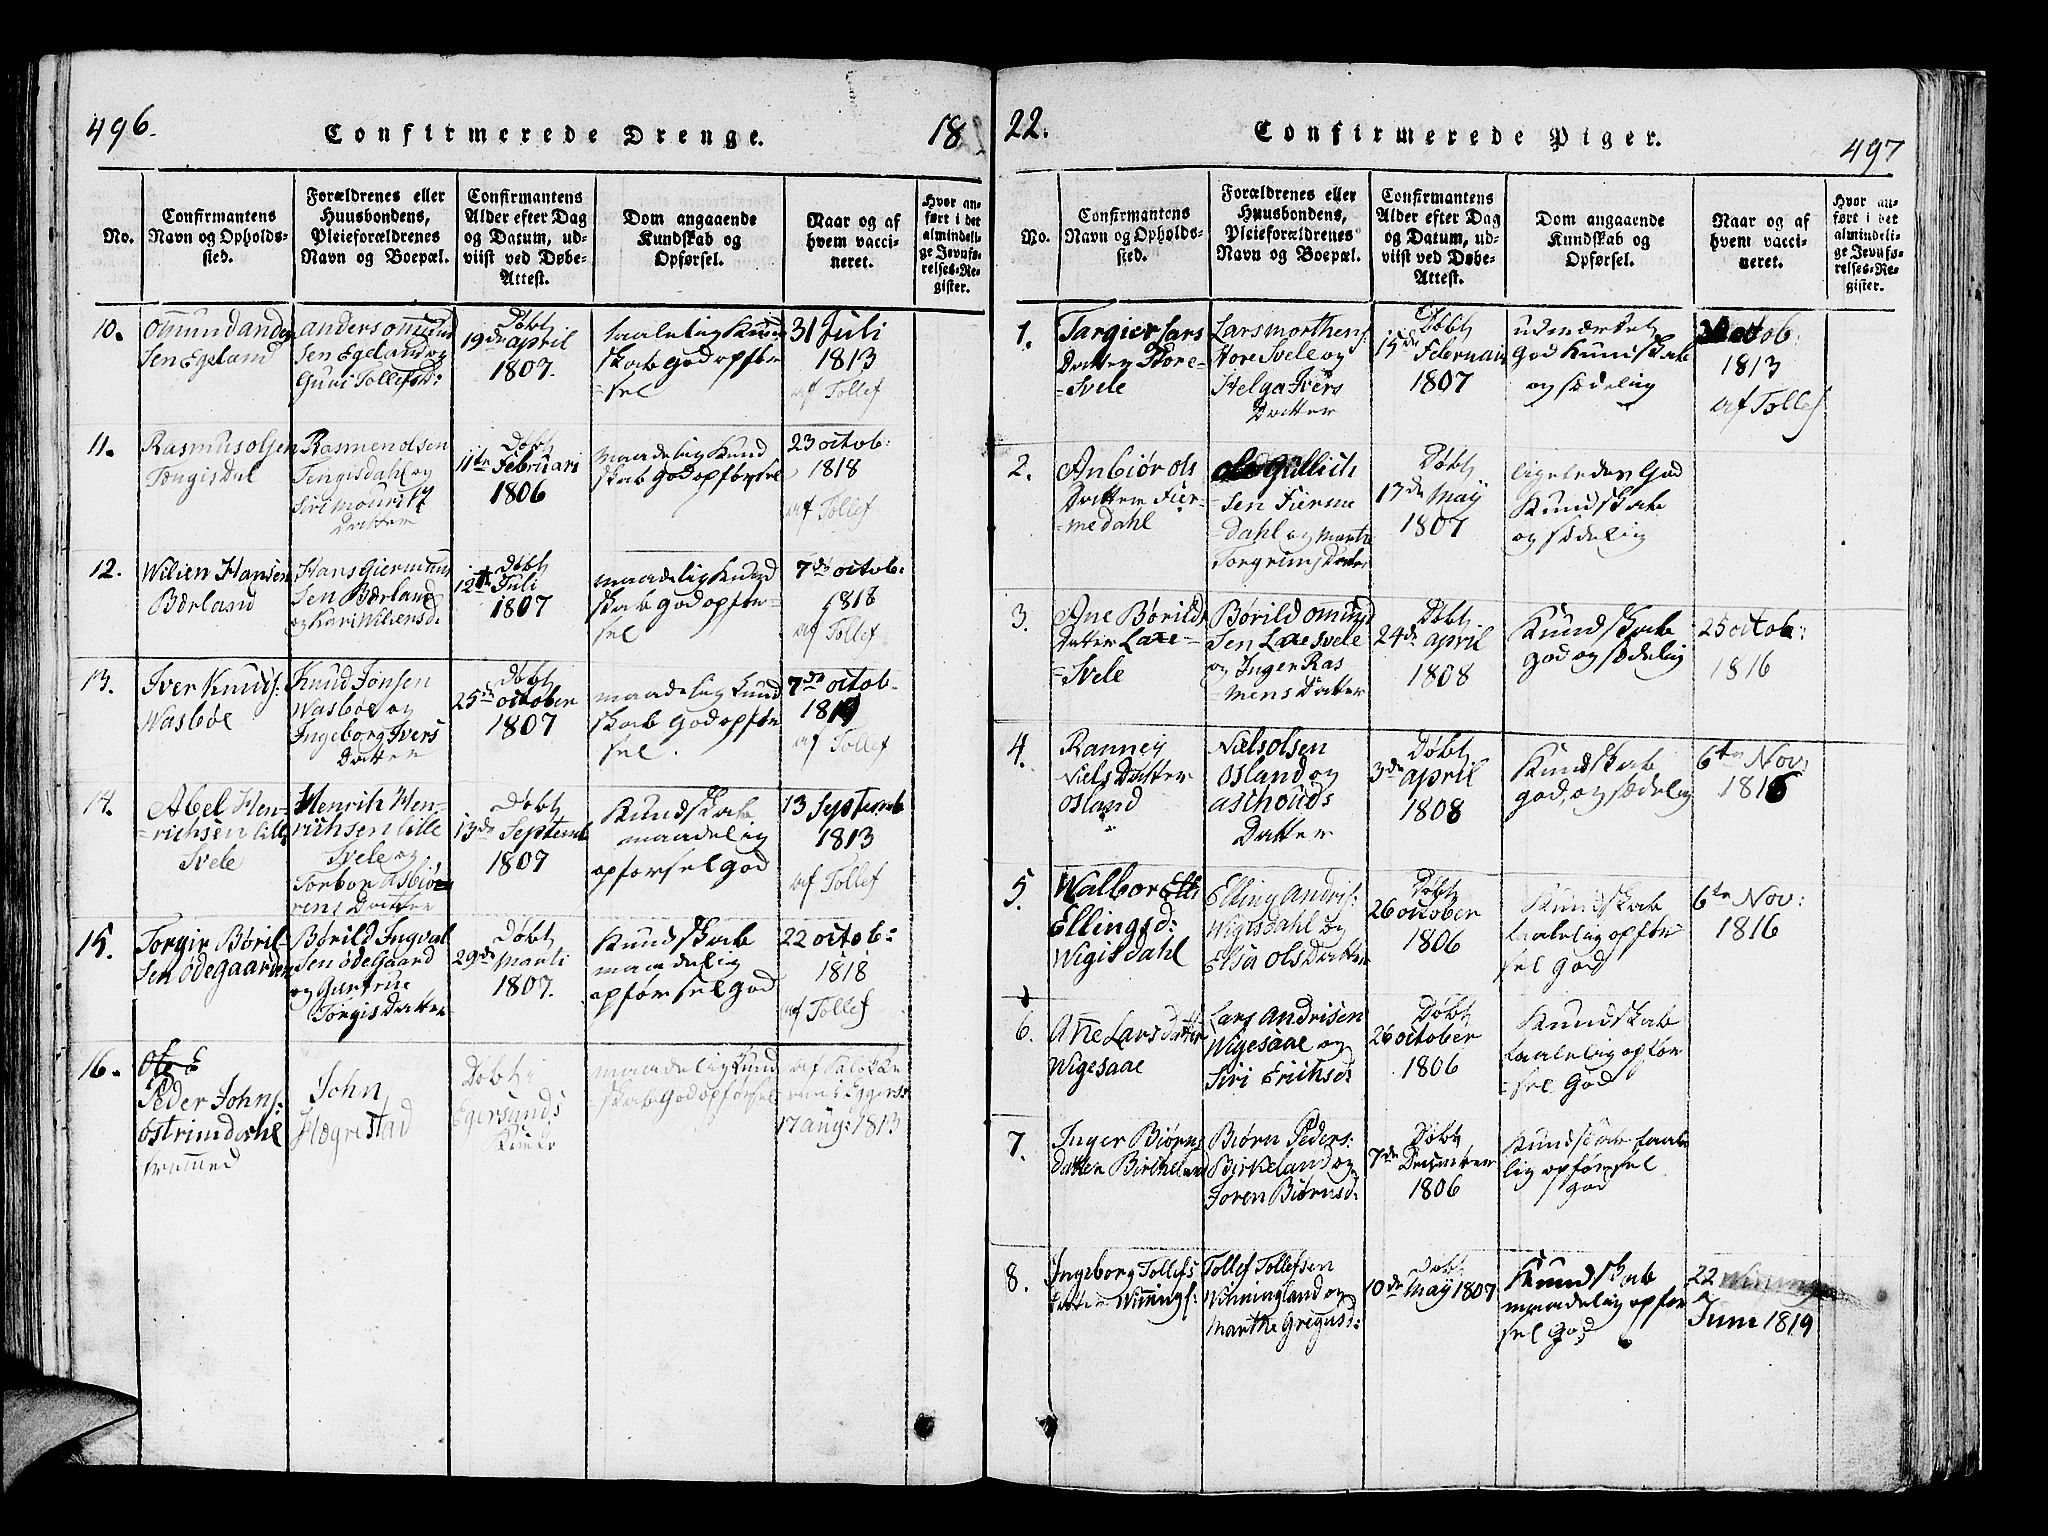 496.
Confirmerede Drenge.
18
No.
Confirmantens Navn og Opholds-sted.
Forældrenes eller Huusbondens, Pleieforældrenes Navn og Boepæl.
Confirmantens Alder efter Dag og Datum, ud-viist ved Døbe-Attest.
Dom angaaende Kundskab og Opførsel.
Naar og af hvem vacci-neret.
Hvor an-ført i det almindeli-ge Jevnfø-relses-Re-gister.
10.
Omund Anders
Sen Egeland
Anders Omund
Sen Egeland og
Guri Tollefsd:
Døbt
19de April
1807.
taalelig Kund
skab god opfør
=sel
31 Juli
1813
af Tollef
11.
Rasmus Olsen
Tengisdal
Rasmen Olsen
Tengisdahl og
Siri Mouritz
Datter
Døbt
11te Februari
1806
maadelig Kund
skab god opførsel
23 octob:
1818
af Tollef
12.
Wilien Hansen
Børland
Hans Giermund
Sen Børland
og Kari Wiliensd:
Døbt
12te Juli
1807
maadelig Kund
skab god opfør=
sel
7de octob:
1818
af Tollef
13.
Iver Knuds:
Wasbøe
Knud Jonsen
Wasbøe og
Ingeborg Ivers
Datter
Døbt
25de october
1807
maadelig Kund
skab god opfør
sel.
7de octob.
af Tollef
14.
Abel Hen=
=richsen lille
Svele
Henrik Hen=
richsen lille
Svele og
Torbor Asbiø
rens Datter
Døbt
13de Septemb
1807
Kundskab
maadelig
opførsel god
13 Septemb
1813
af Tollef
15.
Torgir Børil=
Sen Ødegaarden
Børild Ingval
Sen Ødegaard
og Gurtrue
Torgis Datter
Døbt
29de Marti
1807.
Kundskab
maadelig
opførsel god
22 octob:
1818
af Tollef
16.
Peder Johns:
Østrimdahl
John
Hægrestad
Døbt
Egersunds
Kirke
maadelig Kund
skab god opførsel
af
17 aug: 1813
22.
Confirmerede Piger.
497
No.
Confirmantens Navn og Opholds-sted.
Forældrenes eller Huusbondens, Pleieforældrenes Navn og Boepæl.
Confirmantens Alder efter Dag og Datum, ud-viist ved Døbe-Attest.
Dom angaaende Kundskab og Opførsel.
Naar og af hvem vacci-neret.
Hvor an-ført i det almindeli-ge Jevnfø-relses-Re-gister.
1.
Targier Lars
Datter Store=
=Svele
Lars Morthens:
Store Svele og
Helga Ivers
Datter
Døbt
15de Februari
1807
udmærket
god Kundskab
og sædelig
octob:
1813
af Tollef
2.
Anbiør Ols
Datter Fier=
=medahl
Ole Gullich
=Sen Fierme
Dahl og Marte
Torgrims Datter
Døbt
17de May
1807
ligeledes God
Kundskab
og sædelig
3.
Ane Børilds
Datter Laxe=
=Svele
Børild Omund
Sen Laxesvele
og Inger Ras
=mens Datter
Døbt
24de April
1808
Kundskab
god og sædelig
25 octob:
1816
4.
Ranney
Niels Datter
Osland
Niels Olsen
Osland og
Datter
Døbt
3de April
1808
Kundskab
god, og sædelig
6te Nov
1816
5.
Walbor
Ellingsd:
Wigisdahl
Elling Andris:
Wigisdahl og
Elsa Ols Datter
Døbt
26 october
1806
Kundskab
taalelig opfør
sel God
6te Nov:
1816
6.
Ane Lars Datter
Wigesaae
Lars Andrisen
Wigesaae og
Siri Erichsd
Døbt
26 october
1806
Kundskab
taalelig opfør
=sel God
7.
Inger Biørns
Datter Birkeland
Biørn Peders:
Birkeland og
Joren Biørnsd:
Døbt
7de December
1806
Kundskab taale
lig opførsel
god
8.
Ingeborg Tollefs
Datter Winnings:
Tollef Tollefsen
Winningland og
Marthe Gregusd:
Døbt
10de May 1807
Kundskab
maadelig opfør
sel God
22
Juni 1819